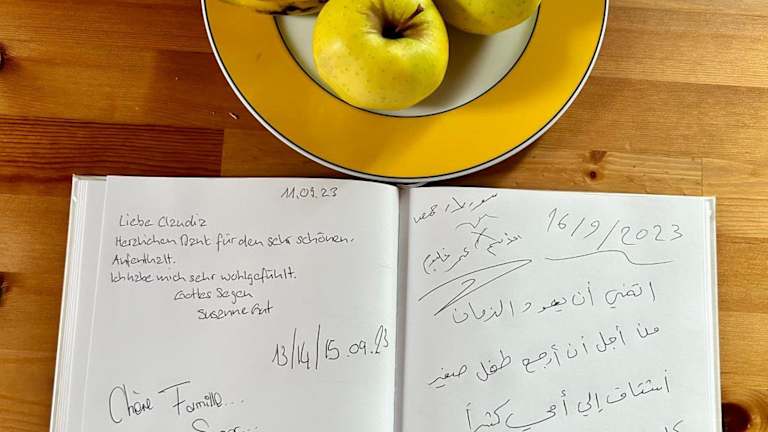 11.09.23
Liebe Claudia
Herzlichen Dank für den sehr schönen.
Aufenthalt.
Ich habe mich sehr wohlgefühlt.
Gottes Segen
Susanne Gut
13/14/15.09.23
Chère Famille...
16/9/2023
اتمنى أن يعود الزمان
من أجل أن أرجع طفل صغير
أشتاق إلى أمي كثيراً